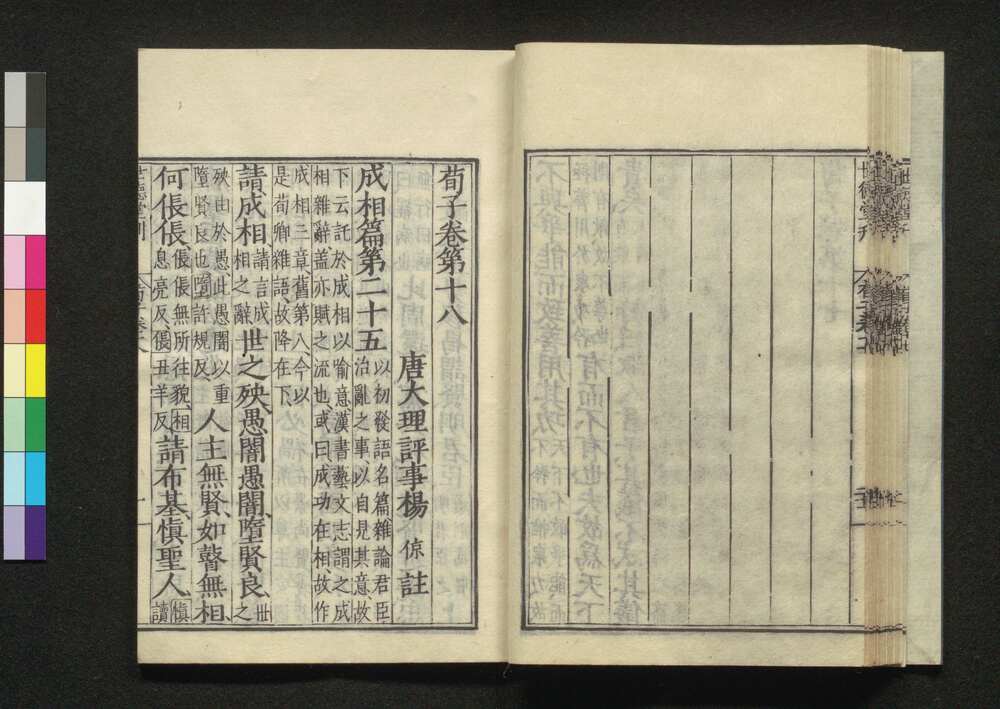 荀子卷第十八
唐大理評事楊 倞 註
成相篇第二十五
以初發語名篇雜論君臣
治亂之事以自是其意故
下云託於成相以喻意漢書藝文志謂之成
相雜辭蓋亦賦之流也或曰成功在相故作
成相三章舊第八今以
是荀卿雜語故降在下
請成相請言成相之辭世之殃愚闇愚闇墮賢良世之
殃由於愚此愚闇以重墮賢良也墮許規反人主無賢如瞽無相
何倀倀倀倀無所往貌相息亮反倀丑羊反請布基慎聖人慎讀
世德堂刊